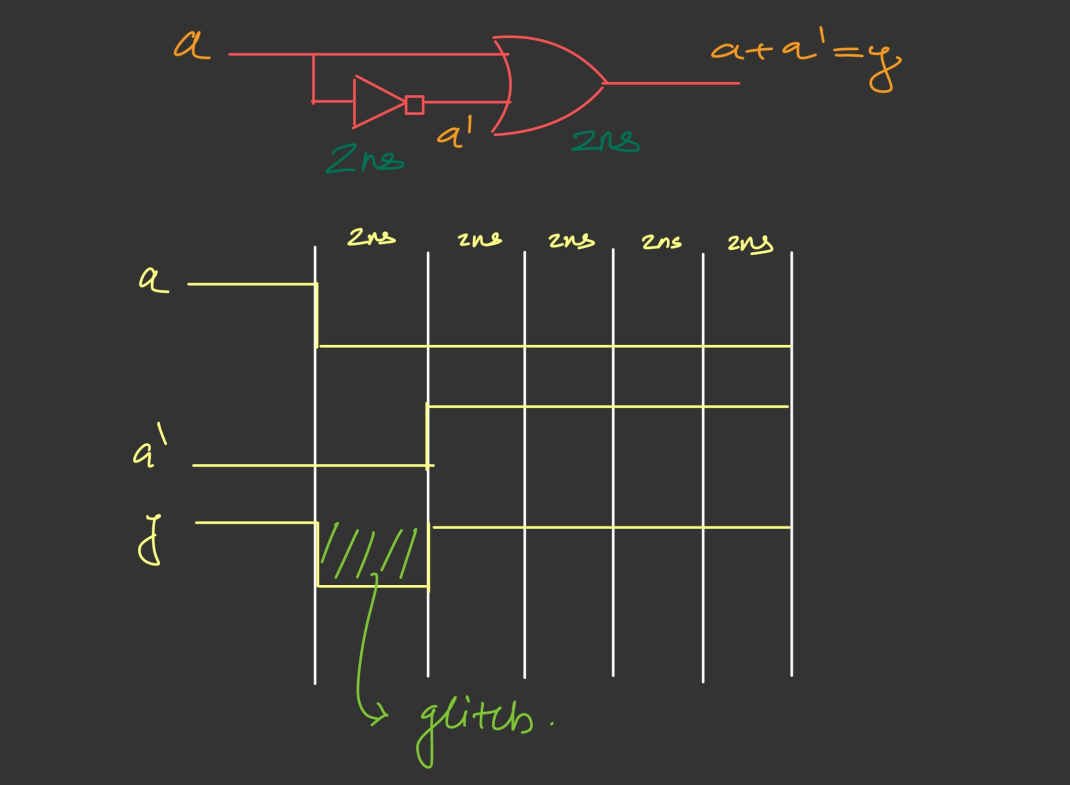 a
a + a' = y
a'
2ns
2ns
2ns 2ns 2ns 2ns 2ns
a
a'
y
glitch.